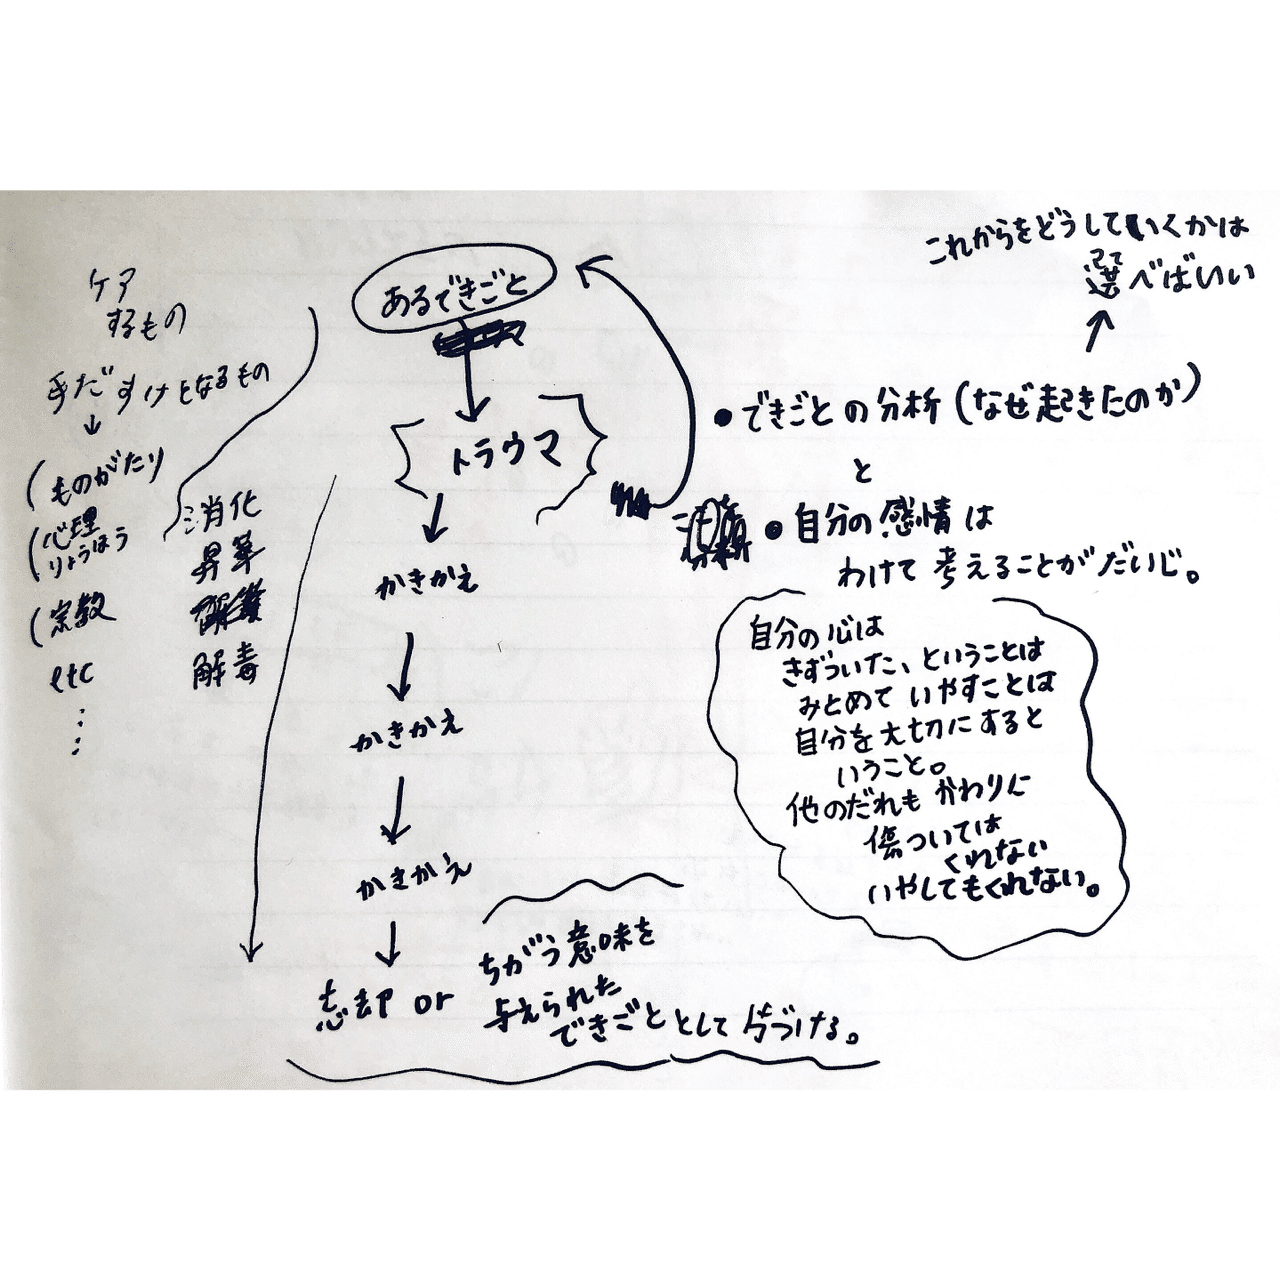 ケア
するもの
手だすけとなるもの
↓
(ものがたり
(心理
りょうほう
(宗教
etc
⋮
消化
昇華
解毒
あるできごと
↓
トラウマ
↓
かきかえ
↓
かきかえ
↓
かきかえ
↓
忘却 or
ちがう意味を
与えられた
できごととして片づける。
これからをどうしていくかは
選べばいい
↑
●できごとの分析(なぜ起きたのか)
と
●自分の感情は
わけて考えることがだいじ。
自分の心は
きずついた、ということは
みとめていやすことは
自分を大切にすると
いうこと。
他のだれもかわりに
傷ついては
くれない
いやしてもくれない。